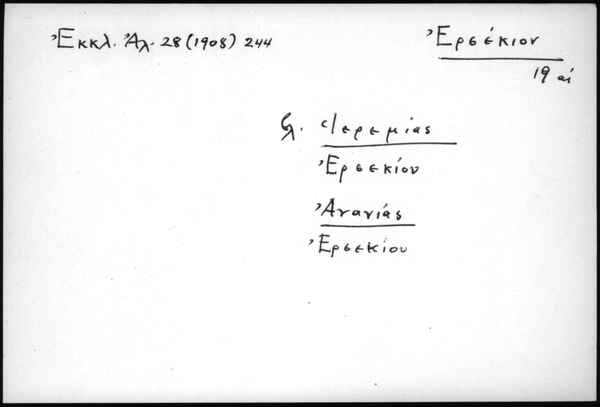 Ἐκκλ. Ἀλ. 28 (1908) 244
Ἐρσέκιον
19 αἰ
βλ. Ἱερεμίας
Ἐρσεκίου
Ἀνανίας
Ἐρσεκίου